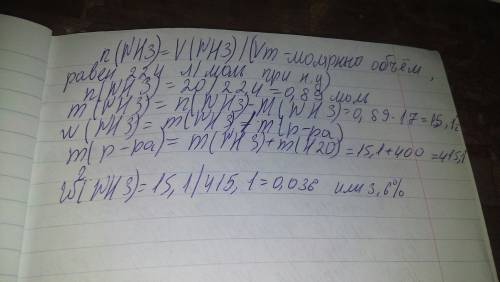 n(NH3)=V(NH3)/(Vm-молярный объём,
равен 22,4 л/моль при н.у)
n(NH3)=20/22,4=0,89 моль
m(NH3)=n(NH3)·M(NH3)=0,89·17=15,1г
w(NH3)=m(NH3)/m(р-ра)
m(р-ра)=m(NH3)+m(H2O)=15,1+400=415,1
г
w(NH3)=15,1/415,1=0,036 или 3,6%